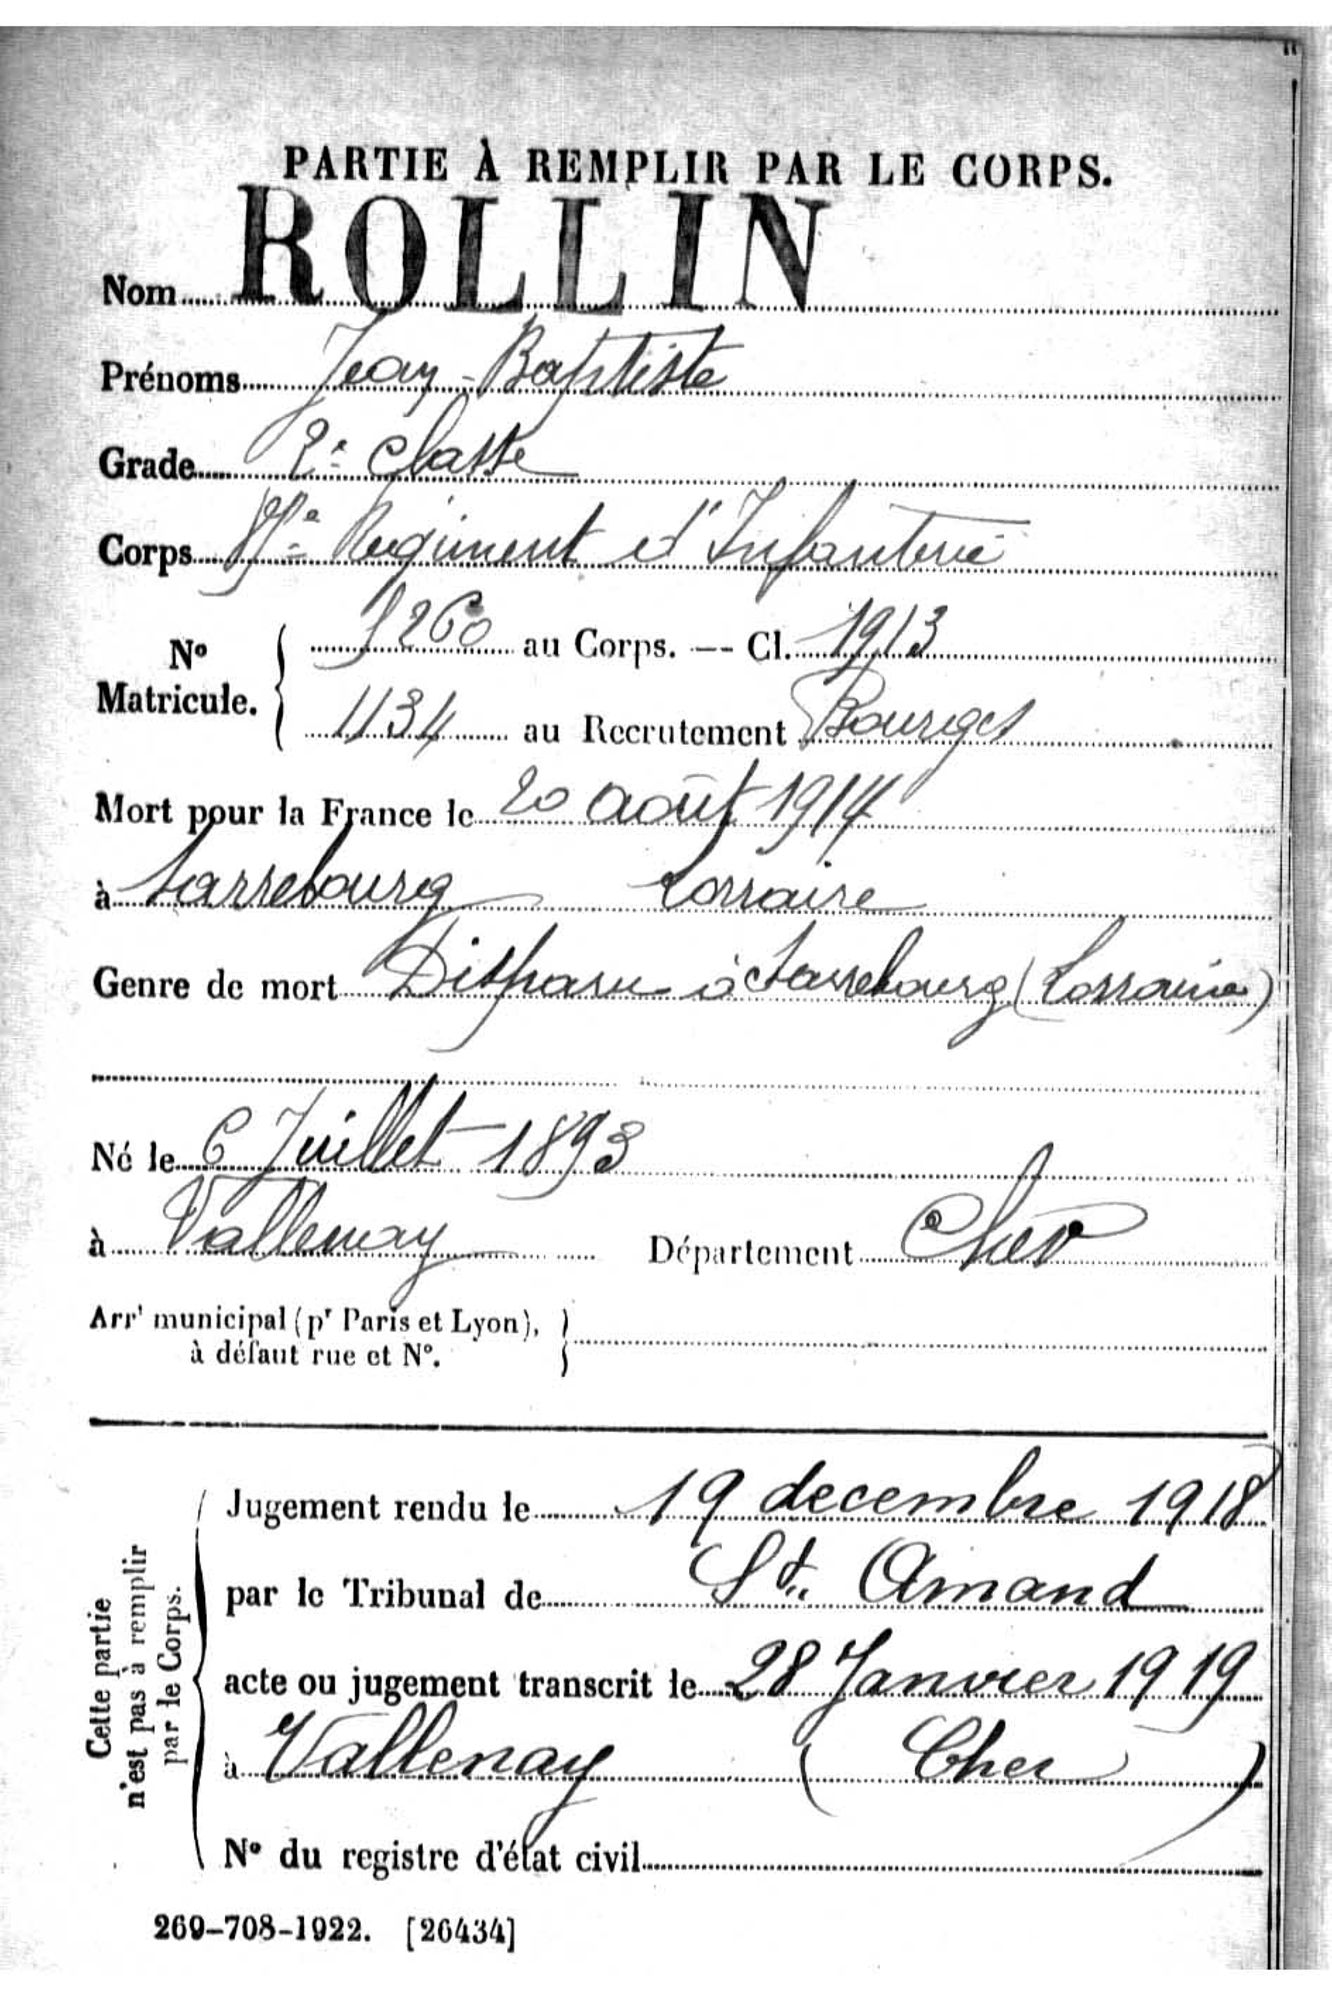 PARTIE À REMPLIR PAR LE CORPS.
Nom ROLLIN
Prénoms Jean-Baptiste
Grade 2e classe
Corps Régiment d'Infanterie
No Matricule. { 5260 au Corps. — Cl. 1913
1134 au Recrutement Bourges
Mort pour la France le 20 août 1914
à Sarrebourg Lorraine
Genre de mort Disparu à Sarrebourg (Lorraine)
Né le 6 Juillet 1893
à Vallenay Département Cher
Arrt municipal (pr Paris et Lyon), }
à défaut rue et No.
Cette partie
n'est pas à remplir
par le Corps.
Jugement rendu le 19 decembre 1918
par le Tribunal de St. Amand
acte ou jugement transcrit le 28 Janvier 1919
à Vallenay (Cher)
No du registre d'état civil
269-708-1922. [26434]